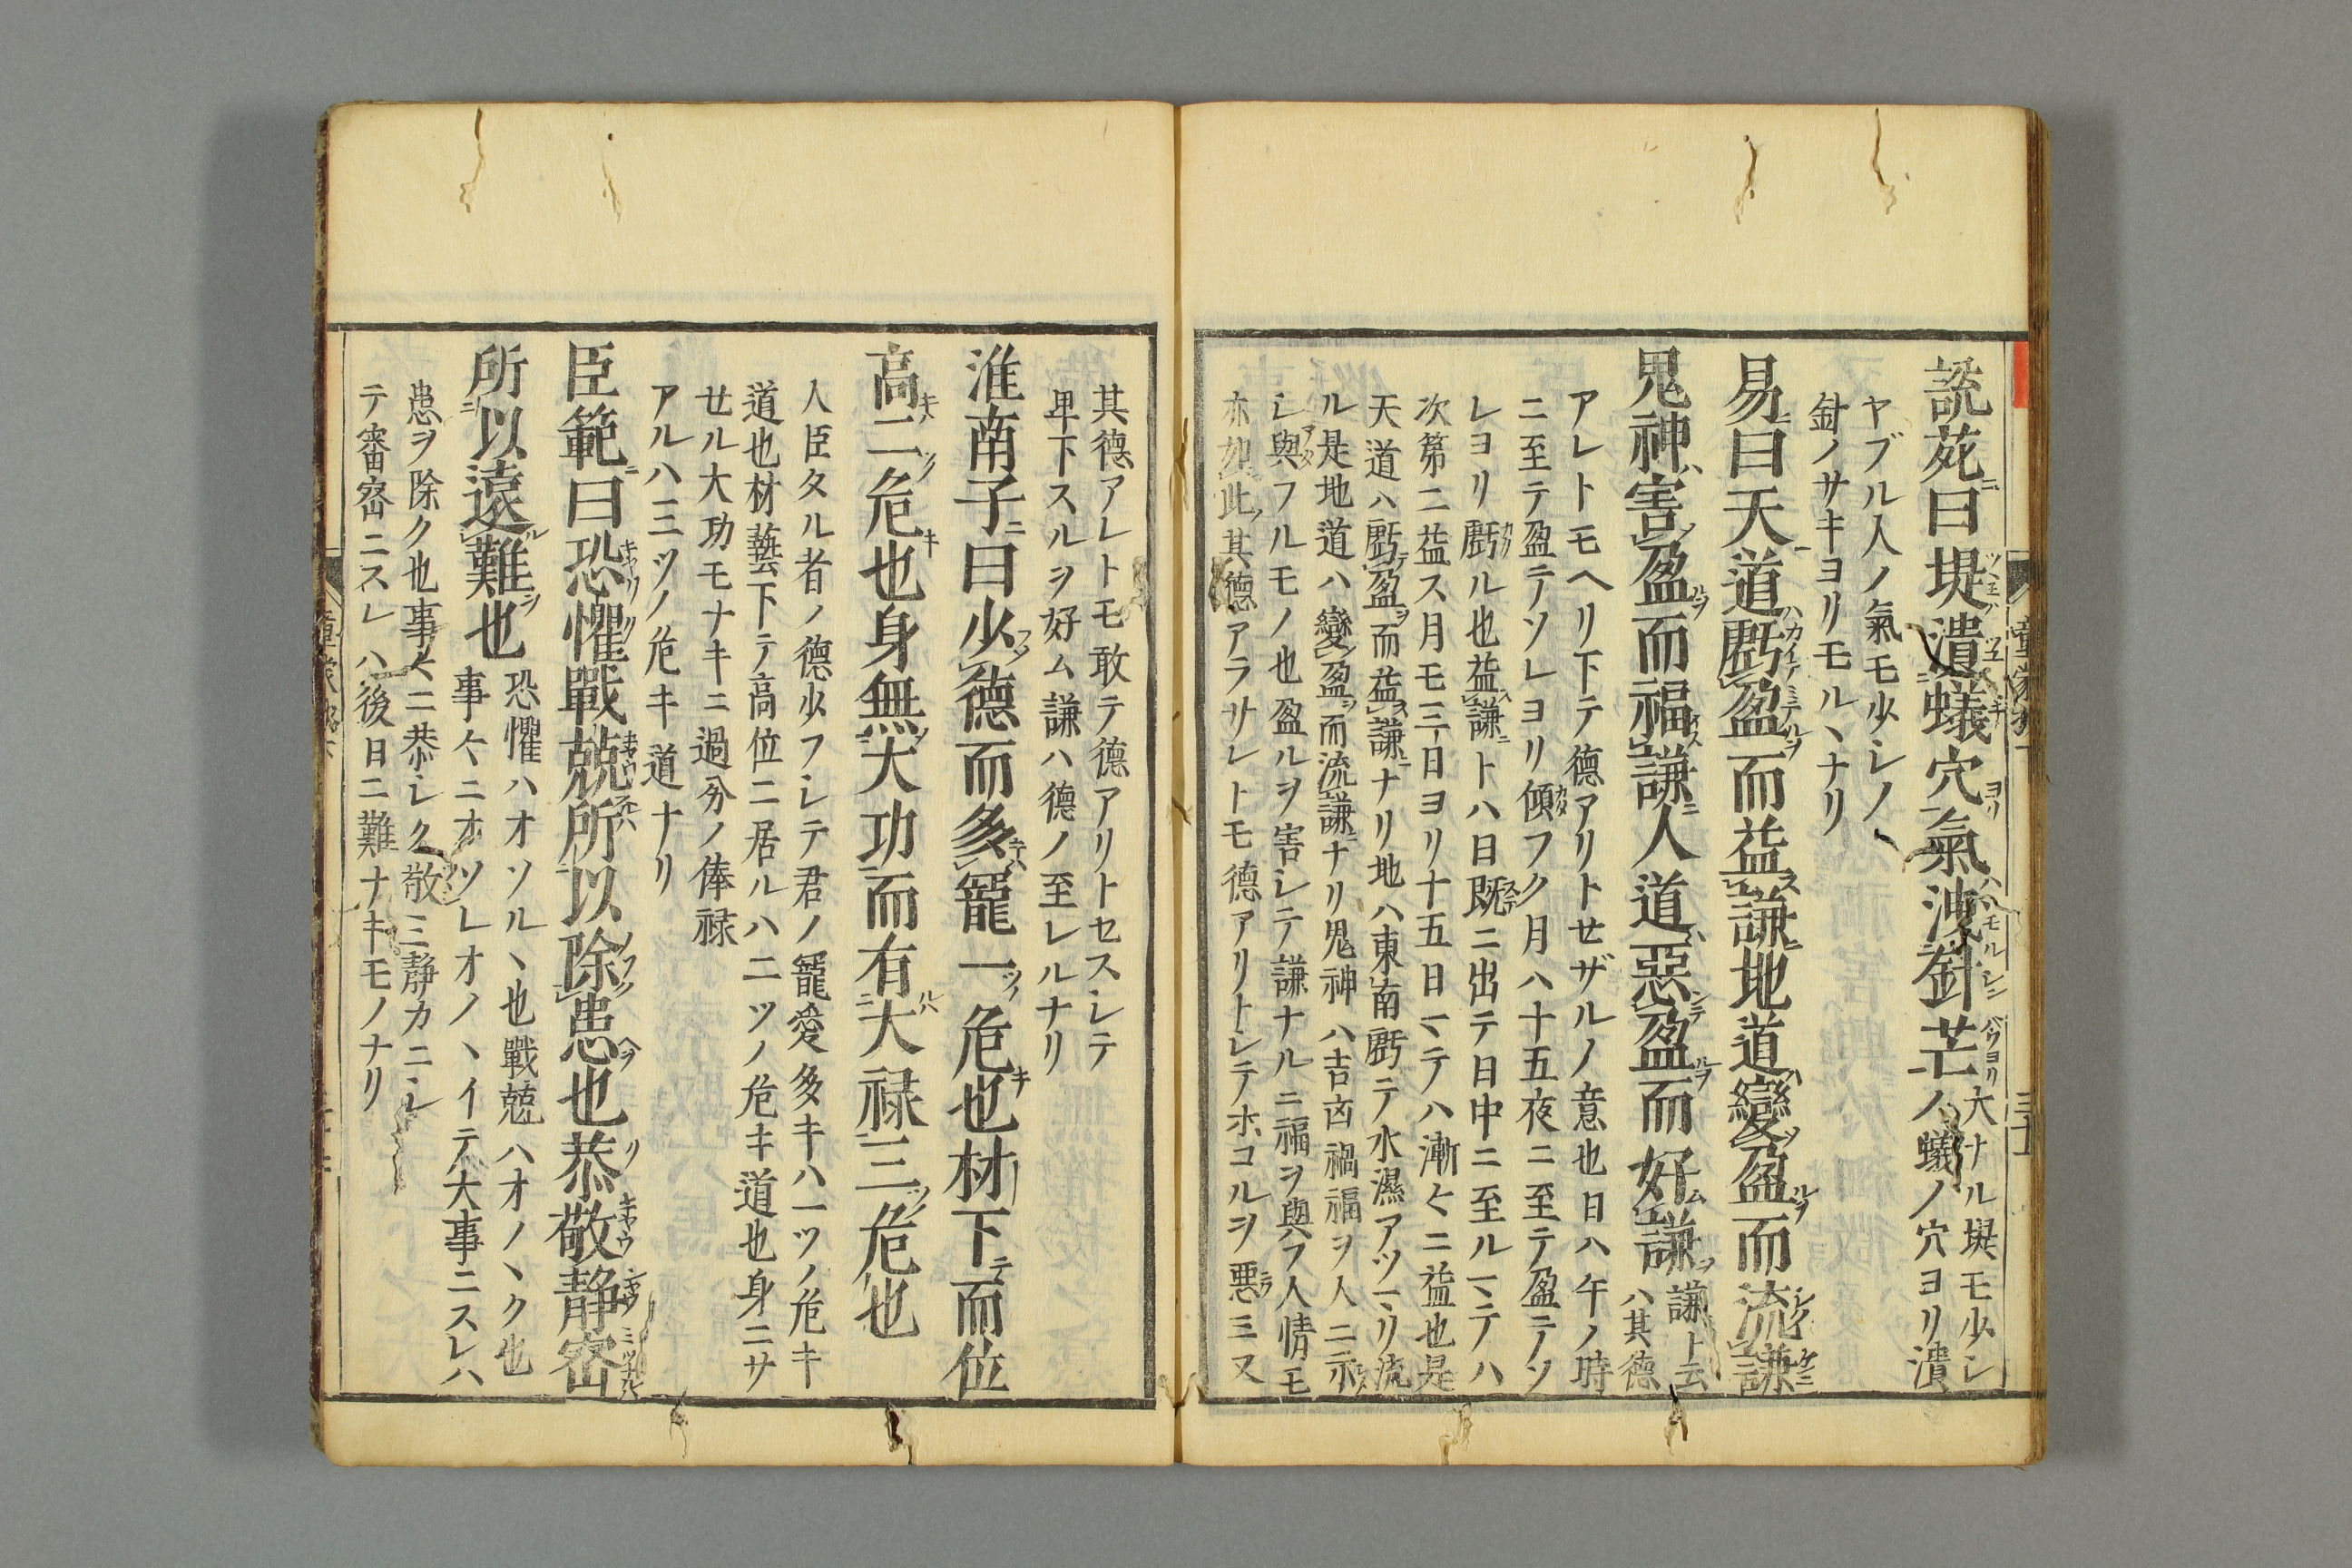 説苑曰堤潰蟻穴氣洩針芒大ナル堤モ少シ
人蟻ノ穴ヨリ潰
ヤブル人ノ氣モ少シノ
針ノサキヨリモルヽナリ
易曰天道虧盈而益謙地道變盈而流謙
鬼神害盈而福謙人道惡盈而好謙謙ト云
ハ其德
アレトモヘリ下テ德アリトせザルノ意也日ハ午ノ時
ニ至テ盈テソレヨリ傾フク月ハ十五夜ニ至テ盈テソ
レヨリ虧ル也益謙トハ日既ニ出テ日中ニ至ルマテハ
次第ニ益ス月モ三日ヨリ十五日マテハ漸々ニ益也是
天道ハ虧盈而益謙ナリ地ハ東南虧テ水濕アツマリ流
ル是地道ハ變盈而流謙ナリ鬼神ハ吉凶禍福ヲ人ニ示
シ與フルモノ也盈ルヲ害シテ謙ナルニ福ヲ與フ人情モ
亦如此其德アラサレトモ德アリトシテホコルヲ悪ミ又
其德アレトモ敢テ德アリトセスシテ
卑下スルヲ好ム謙ハ德ノ至レルナリ
淮南子曰少德而多寵一危也材下而位
高二危也身無大功而有大禄三危也
人臣タル者ノ德少フシテ君ノ寵愛多キハ一ツノ危キ
道也材藝下テ高位ニ居ルハ二ツノ危キ道也身ニサ
せル大功モナキニ過分ノ俸禄
アルハ三ツノ危キ道ナリ
臣範曰恐懼戰兢所以除患也恭敬静密
所以遠難也恐懼ハオソルヽ也戰兢ハオノヽク也
事々ニオソレオノヽイテ大事ニスレハ
患ヲ除ク也事々ニ恭シク敬ミ静カニシ
テ審密ニスレハ後日ニ難ナキモノナリ